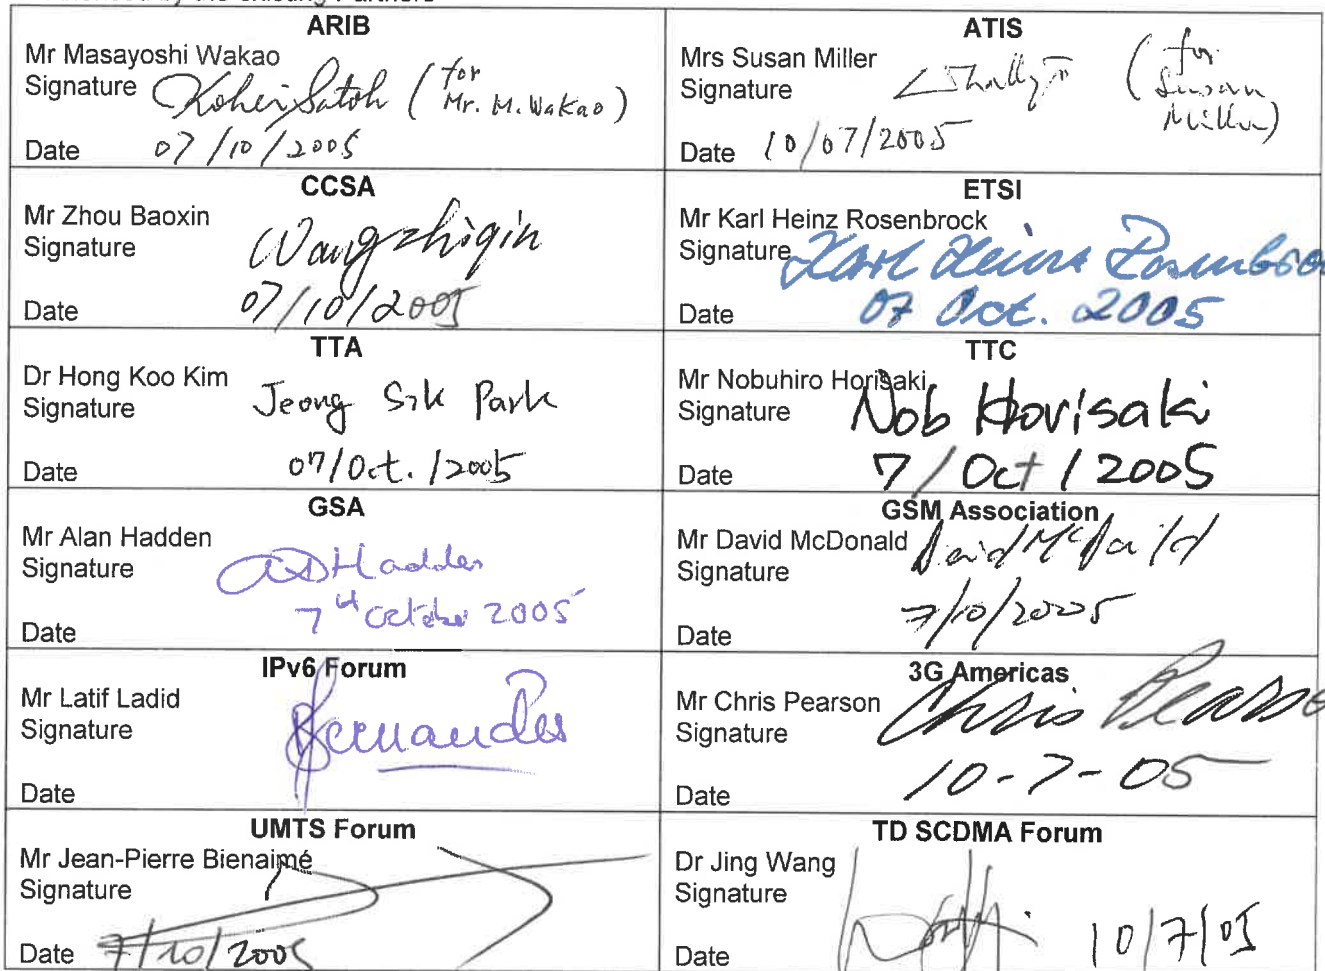 by the existing Partners
ARIB
Mr Masayoshi Wakao
Signature Kohei Satoh (for Mr. M. Wakao)
Date 07/10/2005
ATIS
Mrs Susan Miller
Signature (for Susan Miller)
Date 10/07/2005
CCSA
Mr Zhou Baoxin
Signature Wangzhiqin
Date 07/10/2005
ETSI
Mr Karl Heinz Rosenbrock
Signature Karl Heinz Rosenbroc
Date 07 Oct. 2005
TTA
Dr Hong Koo Kim
Signature Jeong Sik Park
Date 07/Oct./2005
TTC
Mr Nobuhiro Horisaki
Signature Nob Horisaki
Date 7/Oct/2005
GSA
Mr Alan Hadden
Signature ADHadden
Date 7th October 2005
GSM Association
Mr David McDonald
Signature David McDonald
Date 7/10/2005
IPv6 Forum
Mr Latif Ladid
Signature Fernandes
Date
3G Americas
Mr Chris Pearson
Signature Chris Pearso
Date 10-7-05
UMTS Forum
Mr Jean-Pierre Bienaimé
Signature
Date 7/10/2005
TD SCDMA Forum
Dr Jing Wang
Signature
Date 10/7/05